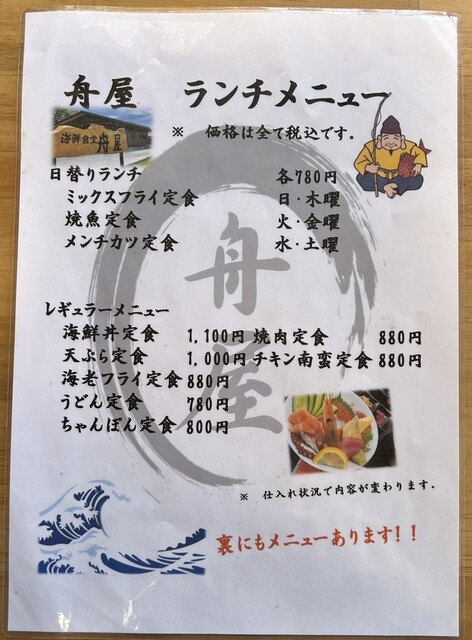 舟屋 ランチメニュー
海鮮食堂 舟屋
※ 価格は全て税込です。
日替りランチ 各780円
ミックスフライ定食 日・木曜
焼魚定食 火・金曜
メンチカツ定食 水・土曜
舟屋
レギュラーメニュー
海鮮丼定食 1,100円 焼肉定食 880円
天ぷら定食 1,000円 チキン南蛮定食 880円
海老フライ定食 880円
うどん定食 780円
ちゃんぽん定食 800円
※ 仕入れ状況で内容が変わります。
裏にもメニューあります!!